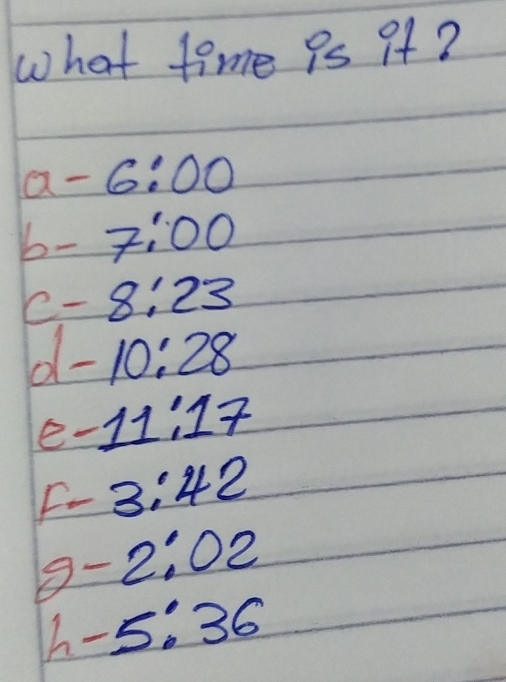 What time is it?
a- 6:00
b- 7:00
c- 8:23
d- 10:28
e- 11:17
f- 3:42
g- 2:02
h- 5:36